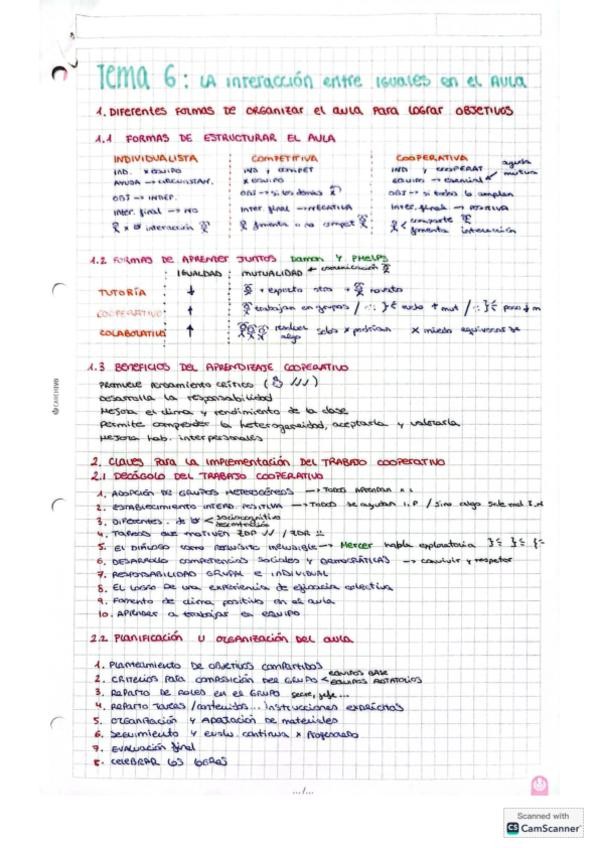 Tema 6: LA INTERACCIÓN ENTRE IGUALES EN EL AULA
1. DIFERENTES FORMAS DE ORGANIZAR EL AULA PARA LOGRAR OBJETIVOS
1.1 FORMAS DE ESTRUCTURAR EL AULA
INDIVIDUALISTA COMPETITIVA COOPERATIVA
IND. X EQUIPO IND y COMPET IND y COOPERAT ayuda mutua
AYUDA → CIRCUNSTAN. X EQUIPO EQUIPO → esencial
OBJ → INDEP. OBJ → si los demás OBJ → si todos lo cumplen
Inter. final → NO Inter. final → NEGATIVA Inter. final → POSITIVA
interacción fomenta comparte
fomenta interacción
1.2 FORMAS DE APRENDER JUNTOS DAMON Y PHELPS
IGUALDAD MUTUALIDAD + comunicación
TUTORÍA ↓ + experto otro + novato
COOPERATIVO ↑ trabajan en grupos
COLABORATIVO ↑ resuelve algo solos X podrían X miedo equivocarse
1.3 BENEFICIOS DEL APRENDIZAJE COOPERATIVO
PROMUEVE PENSAMIENTO CRÍTICO
Desarrolla la responsabilidad
Mejora el clima y rendimiento de la clase
Permite comprender la heterogeneidad, aceptarla y valorarla
Mejora hab. interpersonales
2. CLAVES PARA LA IMPLEMENTACIÓN DEL TRABAJO COOPERATIVO
2.1 DECÁLOGO DEL TRABAJO COOPERATIVO
1. ADOPCIÓN DE GRUPOS HETEROGÉNEOS → TODOS APRENDAN
2. ESTABLECIMIENTO INTERD. POSITIVA → TODOS se ayudan I.P / Sino algo sale mal I.N
3. DIFERENTES
4. TAREAS QUE MOTIVEN ZDP
5. EL DIÁLOGO COMO REQUISITO INELUDIBLE → Mercer habla exploratoria
6. DESARROLLO COMPETENCIAS SOCIALES Y DEMOCRÁTICAS → convivir y respetar
7. RESPONSABILIDAD GRUPAL E INDIVIDUAL
8. EL LOGRO DE UNA EXPERIENCIA DE eficacia colectiva
9. Fomento de clima positivo en el aula
10. APRENDER A trabajar en EQUIPO
2.2 PLANIFICACIÓN U ORGANIZACIÓN DEL AULA
1. Planteamiento DE OBJETIVOS COMPARTIDOS
2. CRITERIOS PARA COMPOSICIÓN DEL GRUPO < EQUIPOS BASE
EQUIPOS ROTATORIOS
3. REPARTO DE ROLES EN EL GRUPO secre, jefe...
4. REPARTO TAREAS/contenidos... instrucciones explícitas
5. ORGANIZACIÓN Y APORTACIÓN DE MATERIALES
6. SEGUIMIENTO Y evalu. continua X Profesorado
7. EVALUACIÓN final
8. CELEBRAR LOS
.../...
CANCHING
Scanned with
CS CamScanner